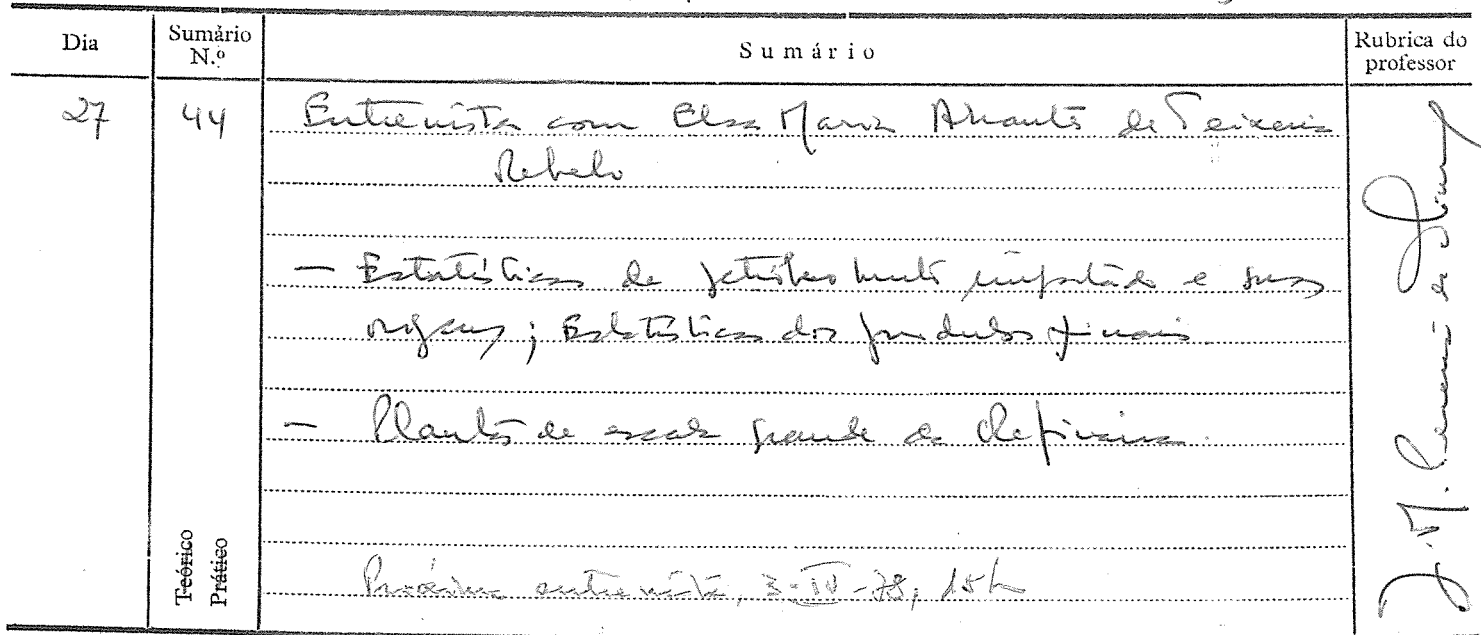 Dia
Sumário N.º
Sumário
Rubrica do professor
27
44
Entrevista com Elsa Maria Abrantes de Teixeira
Rebelo
— Estatísticas de petróleo bruto importado e suas
origens; Estatísticas dos produtos finais.
— Planta de escala grande da Refinaria.
Teórico
Prático
Próxima entrevista, 3-IV-78, 15h
J. M. Pereira de